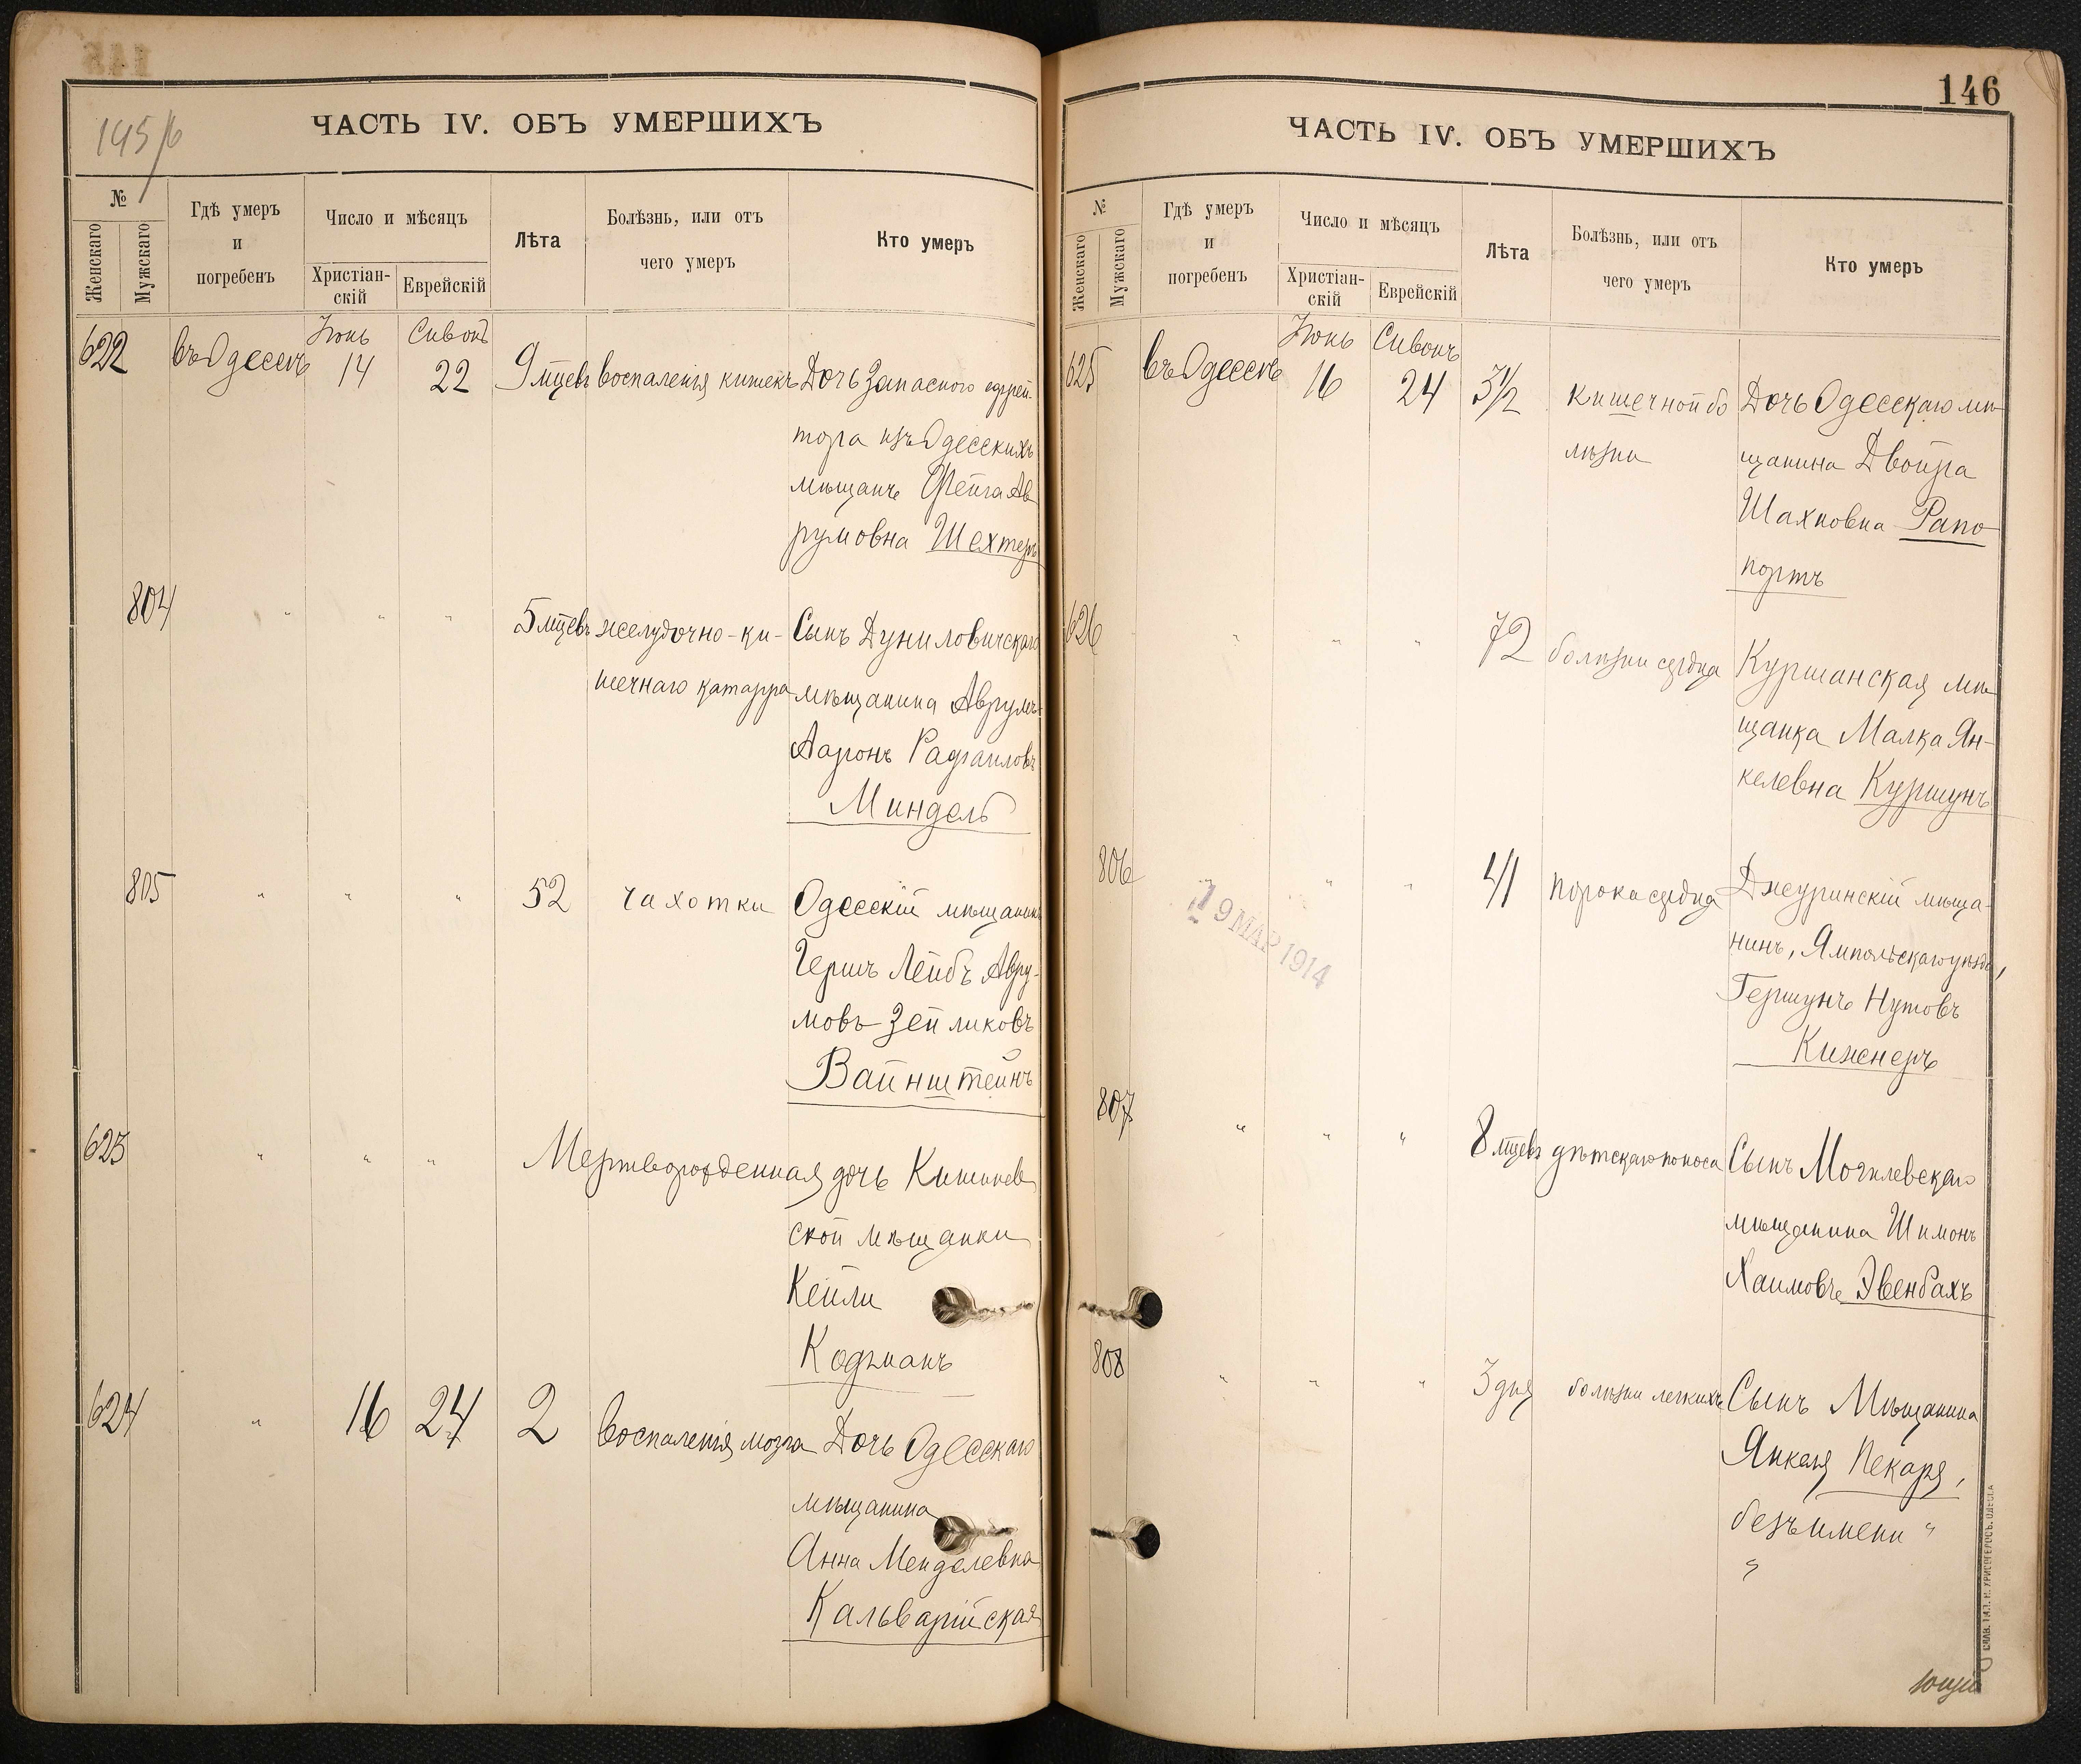 145/6
ЧАСТЬ IV. ОБЪ УМЕРШИХЪ
№
Женскаго
Мужскаго
Гдѣ умеръ
и
погребенъ
Число и мѣсяцъ
Христіан-
скій
Еврейскій
Лѣта
Болѣзнь, или отъ
чего умеръ
Кто умеръ
Іюнь Сивонъ
622 въ Одессѣ 14 22 9 мцевъ воспаленія кишекъ Дочь Запасного ефрей-
тора изъ Одесскихъ
мѣщанъ Фейга Ав
румовна Шехтеръ
804 " " " 5 мцевъ желудочно-ки- Сынъ Дуниловичскаго
шечнаго катарра мѣщанина Аврумъ-
Ааронъ Рафаиловъ
Миндель
805 " " " 52 чахотки Одесскій мѣщанинъ
Гершъ Лейбъ Авру-
мовъ-Зейликовъ
Вайнштейнъ
623 " " " Мертворожденная дочь Кишинев
ской мѣщанки
Кейли
Кофманъ
624 " 16 24 2 воспаленія мозга Дочь Одесскаго
мѣщанина
Анна Менделевна
Кальварійская
146
ЧАСТЬ IV. ОБЪ УМЕРШИХЪ
№
Женскаго
Мужскаго
Гдѣ умеръ
и
погребенъ
Число и мѣсяцъ
Христіан-
скій
Еврейскій
Лѣта
Болѣзнь, или отъ
чего умеръ
Кто умеръ
Іюнь Сивонъ
625 въ Одессѣ 16 24 3½ кишечной бо Дочь Одесскаго мѣ
лѣзни щанина Двойра
Шахновна Рапо
портъ
626 " " " 72 болѣзни сердца Куршанская мѣ
щанка Малка Ян-
келевна Куршунъ
806 " " " 41 порока сердца Джуринскій мѣща-
нинъ, Ямпольскаго уѣзда,
Гершунъ Нутовъ
Кижнеръ
19 МАР 1914
807 " " " 8 мцевъ дѣтскаго поноса Сынъ Могилевскаго
мѣщанина Шимонъ
Хаимовъ Эвенбахъ
808 " " " 3 дня болѣзни легкихъ Сынъ Мѣщанина
Янкеля Пекаря,
безъ имени "
"